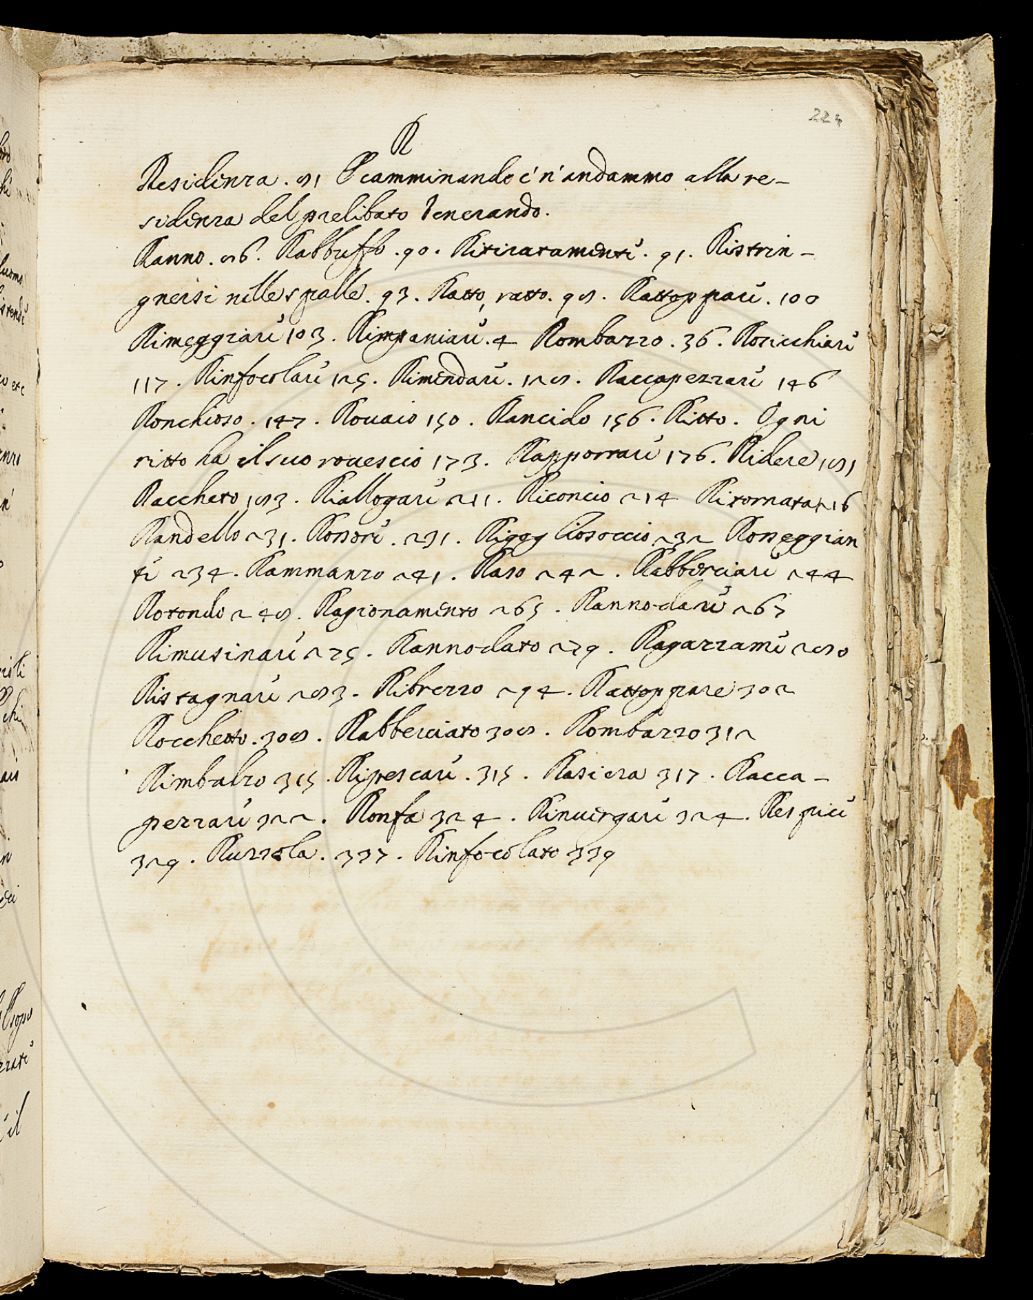 224
R
Residenza. 81 E camminando c'n'andammo alla re-
sidenza del prelibato Venerando.
Ranno. 86. Rabbuffo. 90. Ritiratamente. 91. Ristrin-
gnersi nelle spalle. 93. Ratto, ratto. 98. Rattoppare. 100
Rimeggiare 103. Rimpaniare. 4 Rombazzo. 36. Rosicchiare
117. Rinfocolare 125. Rimendare. 128. Raccapezzare 146
Ronchioso. 147. Rovaio 150. Rancido 156. Ritto. Ogni
ritto ha il suo rovescio 173. Rapportare 176. Ridere 181
Racchero 183. Riallogare 211. Riconcio 214 Ritornata 216
Randello 231. Rossore. 231. Rigogliosoccio 232 Rosseggian
te 234. Rammanzo 241. Raso 242. Rabberciare 244
Rotondo 248. Ragionamento 265. Rannodare 267
Rimusinare 275. Rannodato 279. Ragazzame 280
Ristagnare 283. Ribrezzo 294. Rattoppare 302
Rocchetto. 308. Rabberciato 308. Rombazzo 312
Rimbalzo 315. Ripescare. 315. Rasiera 317. Racca-
pezzare 322. Ronfa 324. Rinvergare 324. Respice
329. Ruzzola. 337. Rinfocolato 339